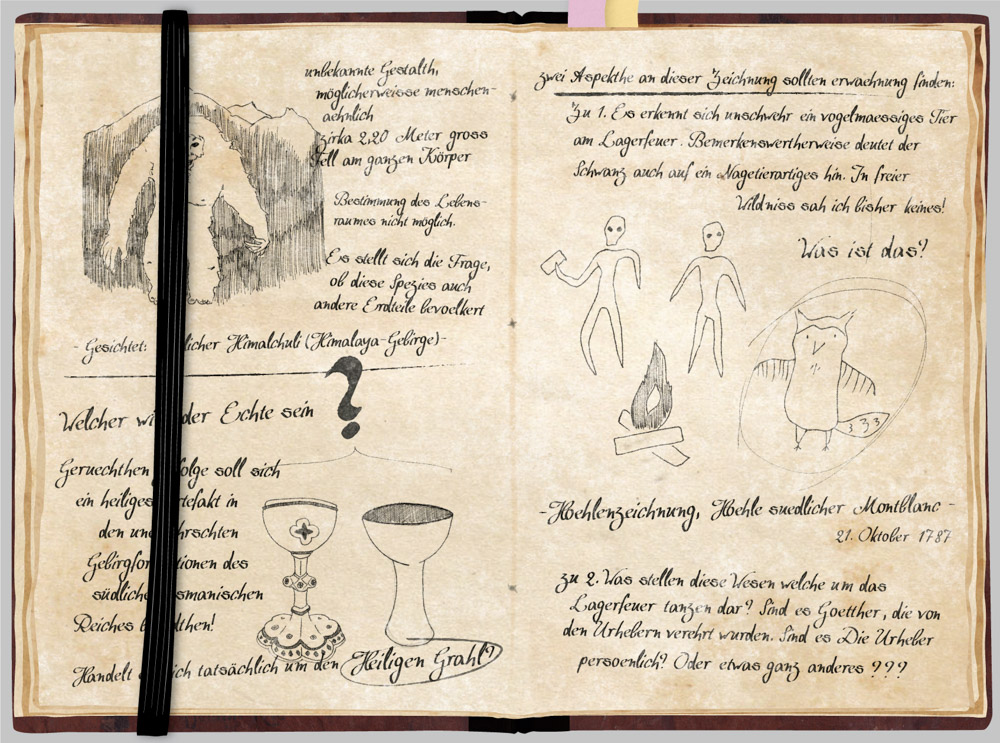 unbekannte Gestalth,
möglicherweisse menschen-
aehnlich
zirka 2,20 Meter gross
Fell am ganzen Körper
Bestimmung des Lebens-
raumes nicht möglich.
Es stellt sich die Frage,
ob diese Spezies auch
andere Erdteile bevoelkert
- Gesichtet: licher Himalchuli (Himalaya-Gebirge)-
Welcher wi der Echte sein
?
Geruechthen folge soll sich
ein heiliges rtefakt in
den une hrschten
Gebirgfor tionen des
südliche smanischen
Reiches b dthen!
Handelt ich tatsächlich um den Heiligen Grahl?
zwei Aspekthe an dieser Zeichnung sollten erwaehnung finden:
Zu 1. Es erkennt sich unschwehr ein vogelmaessiges Tier
am Lagerfeuer. Bemerkenswertherweise deutet der
Schwanz auch auf ein Nagetierartiges hin. In freier
Wildniss sah ich bisher keines!
Was ist das?
-Hoehlenzeichnung, Hoehle suedlicher Montblanc-
21. Oktober 1787
zu 2. Was stellen diese Wesen welche um das
Lagerfeuer tanzen dar? Sind es Goetther, die von
den Urhebern verehrt wurden. Sind es Die Urheber
persoenlich? Oder etwas ganz anderes ???